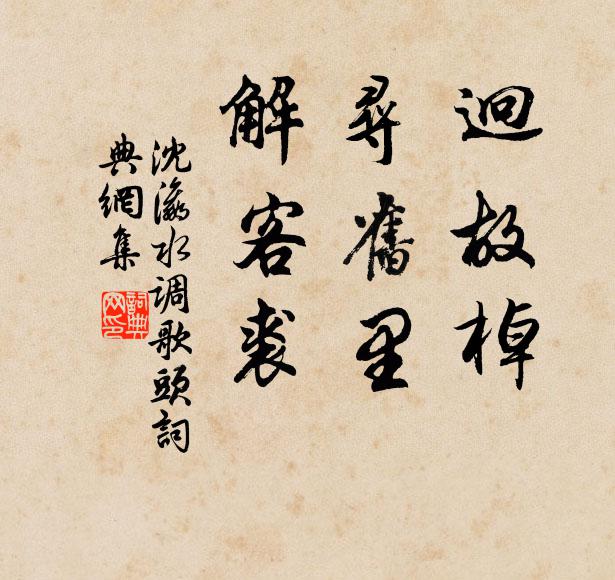 迴故棹
尋舊里
解客裘
沈瀛水调歌頭詞
典網集
詞典
网印